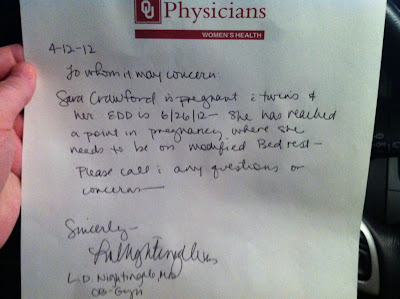 OU
Physicians
WOMEN'S HEALTH
4-12-12
To whom it may concern:
Sara Crawford is pregnant c̄ twins &
her EDD is 6/26/12- She has reached
a point in pregnancy where she
needs to be on modified Bed rest-
Please call c̄ any questions or
concerns-
Sincerely-
L.D. Nightingale, MD
OB-Gyn